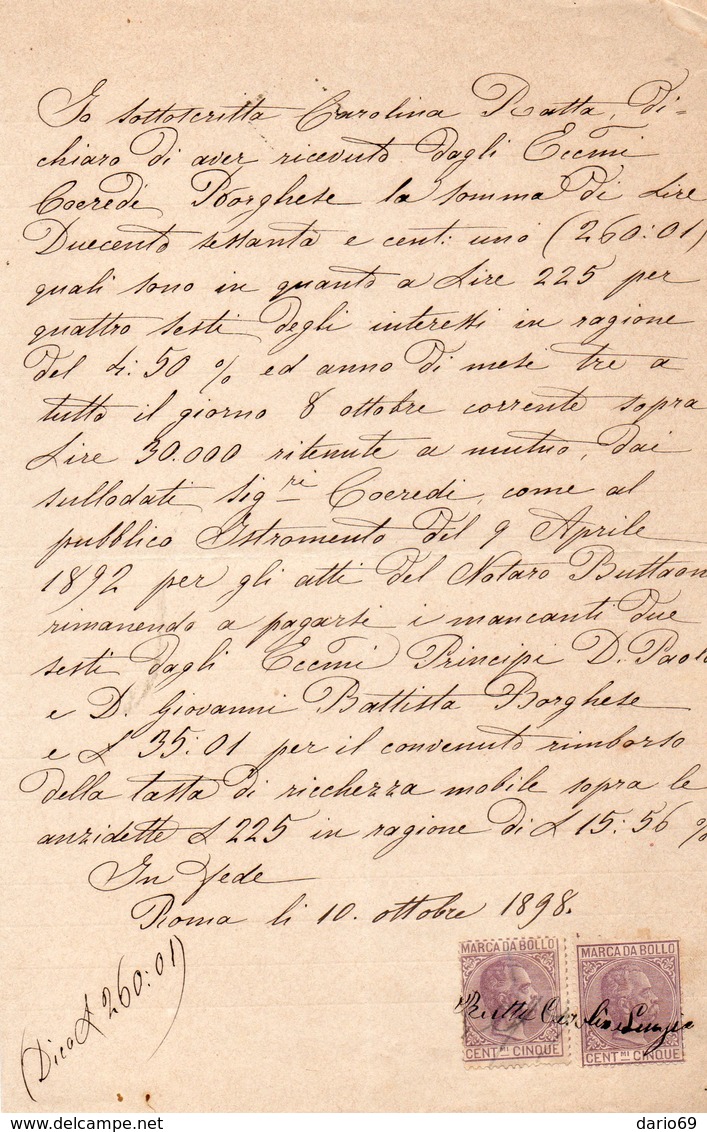 Io sottoscritta Carolina Ratta, di=
chiaro di aver ricevuto dagli Eccmi
Coeredi Borghese la somma di Lire
Duecento sessanta e cent: uno (260:01)
quali sono in quanto a Lire 225 per
quattro sesti degli interessi in ragione
del 4:50 % ed anno di mesi tre a
tutto il giorno 8 ottobre corrente sopra
Lire 30.000 ritenute a mutuo, dai
sullodati Sigri Coeredi, come al
pubblico Istromento del 9 Aprile
1892 per gli atti del Notaro Buttaon
rimanendo a pagarsi i mancanti due
sesti dagli Eccmi Principi D. Paolo
e D. Giovanni Battista Borghese
e £ 35:01 per il convenuto rimborso
della tassa di ricchezza mobile sopra le
anzidette £ 225 in ragione di £ 15:56 %
In Fede
Roma li 10. ottobre 1898.
(Dico £ 260:01)
MARCA DA BOLLO MARCA DA BOLLO
CENT.MI CINQUE CENT.MI CINQUE
dario69